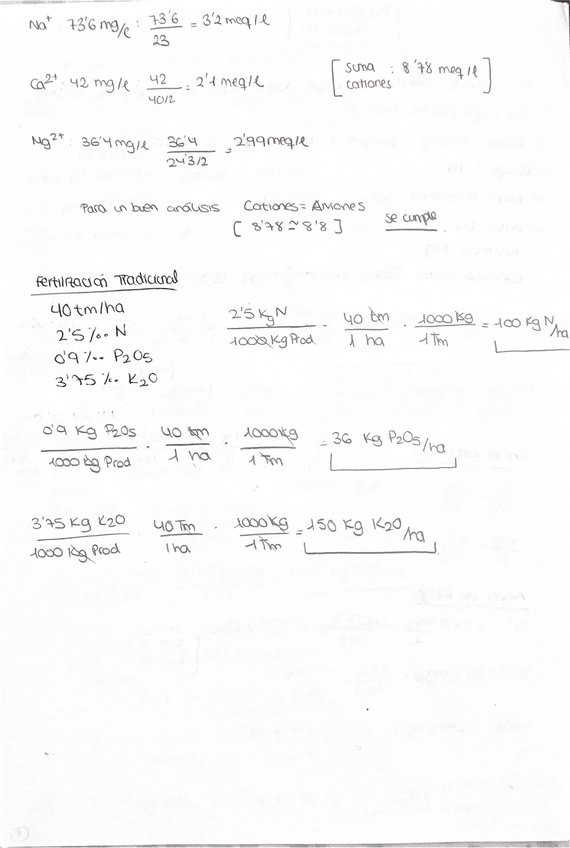 Na⁺ 73'6 mg/l : 73'6/23 = 3'2 meq/l
Ca²⁺ : 42 mg/l : 42/40/2 = 2'1 meq/l [suma cationes : 8'78 meq/l]
Mg²⁺ : 36'4 mg/l 36'4/24'3/2 = 2'99 meq/l
Para un buen análisis Cationes = Aniones se cumple
[8'78 ≃ 8'8]
Fertilización Tradicional
40 tm/ha
2'5 ‰ N
0'9 ‰ P2O5
3'75 ‰ K2O
2'5 Kg N/1000 Kg Prod. · 40 tm/1 ha · 1000 Kg/1 Tm = 100 Kg N/ha
0'9 Kg P2O5/1000 Kg Prod · 40 tm/1 ha · 1000 Kg/1 Tm = 36 Kg P2O5/ha
3'75 Kg K2O/1000 Kg Prod · 40 Tm/1 ha · 1000 Kg/1 Tm = 150 Kg K2O/ha